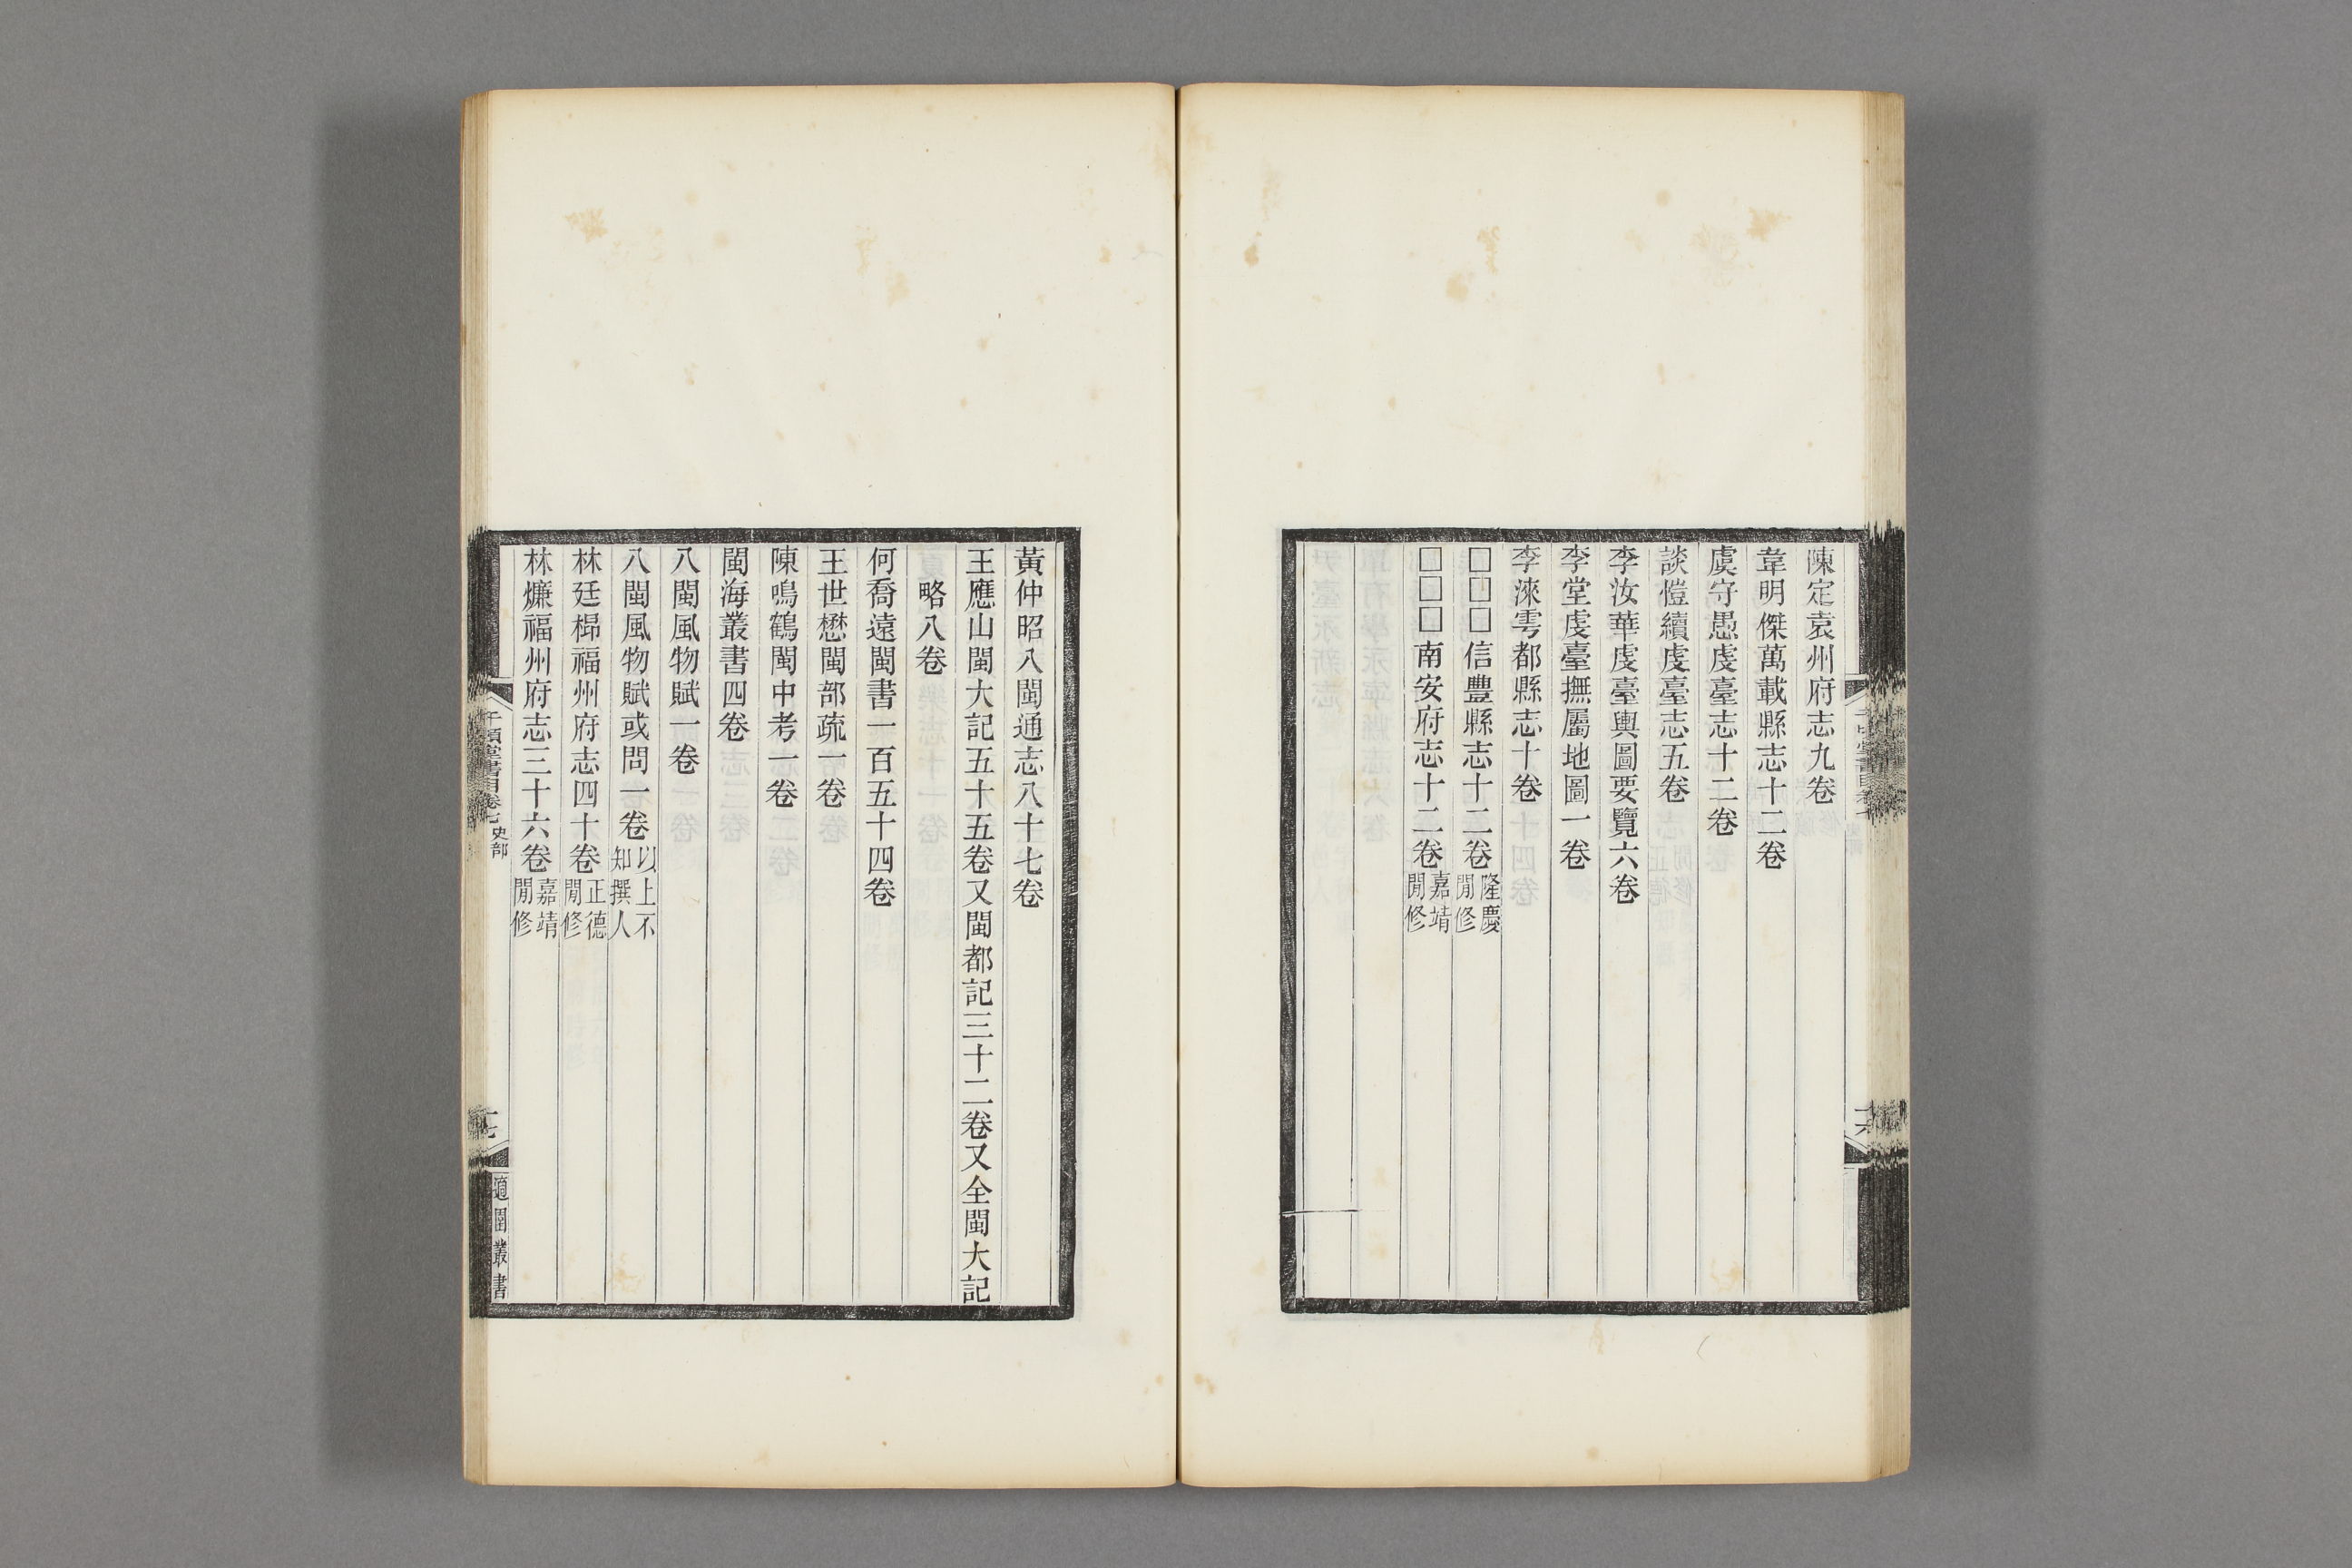 陳定袁州府志九卷
韋明傑萬載縣志十二卷
虞守愚虔臺志十二卷
談愷續虔臺志五卷
李汝華虔臺輿圖要覽六卷
李堂虔臺撫屬地圖一卷
李淶雩都縣志十卷
□□□信豐縣志十二卷隆慶閒修
□□□南安府志十二卷嘉靖閒修
黃仲昭八閩通志八十七卷
王應山閩大記五十五卷又閩都記三十二卷又全閩大記
略八卷
何喬遠閩書一百五十四卷
王世懋閩部疏一卷
陳鳴鶴閩中考一卷
閩海叢書四卷
八閩風物賦一卷
八閩風物賦或問一卷以上不知撰人
林廷㭿福州府志四十卷正德閒修
林燫福州府志三十六卷嘉靖閒修
千頃堂書目卷七史部
適園叢書